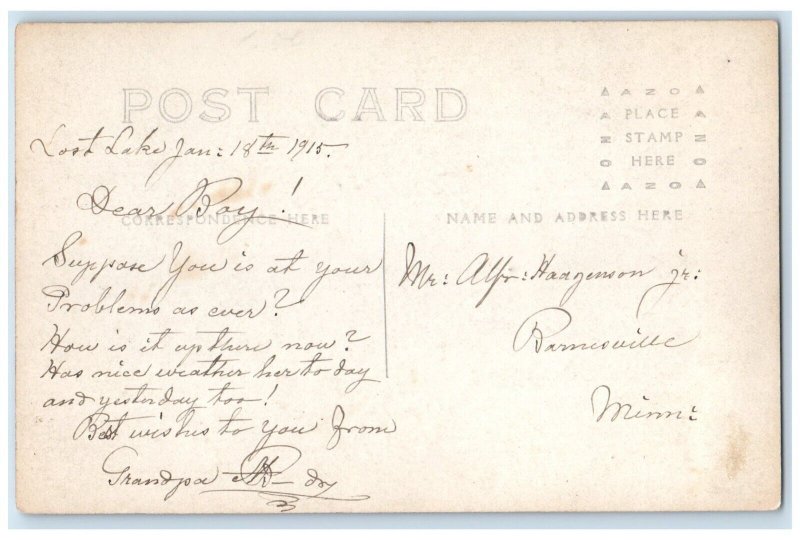 POST CARD
AZO
PLACE
STAMP
HERE
AZO
Lost Lake Jan: 18th 1915.
Dear Boy!
CORRESPONDENCE HERE
Suppose You is at your
Problems as ever?
How is it up there now?
Has nice weather her to day
and yesterday too!
Best wishes to You from
Grandpa
NAME AND ADDRESS HERE
Mr: Alfr: Haagenson jr:
Barnesville
Minn: